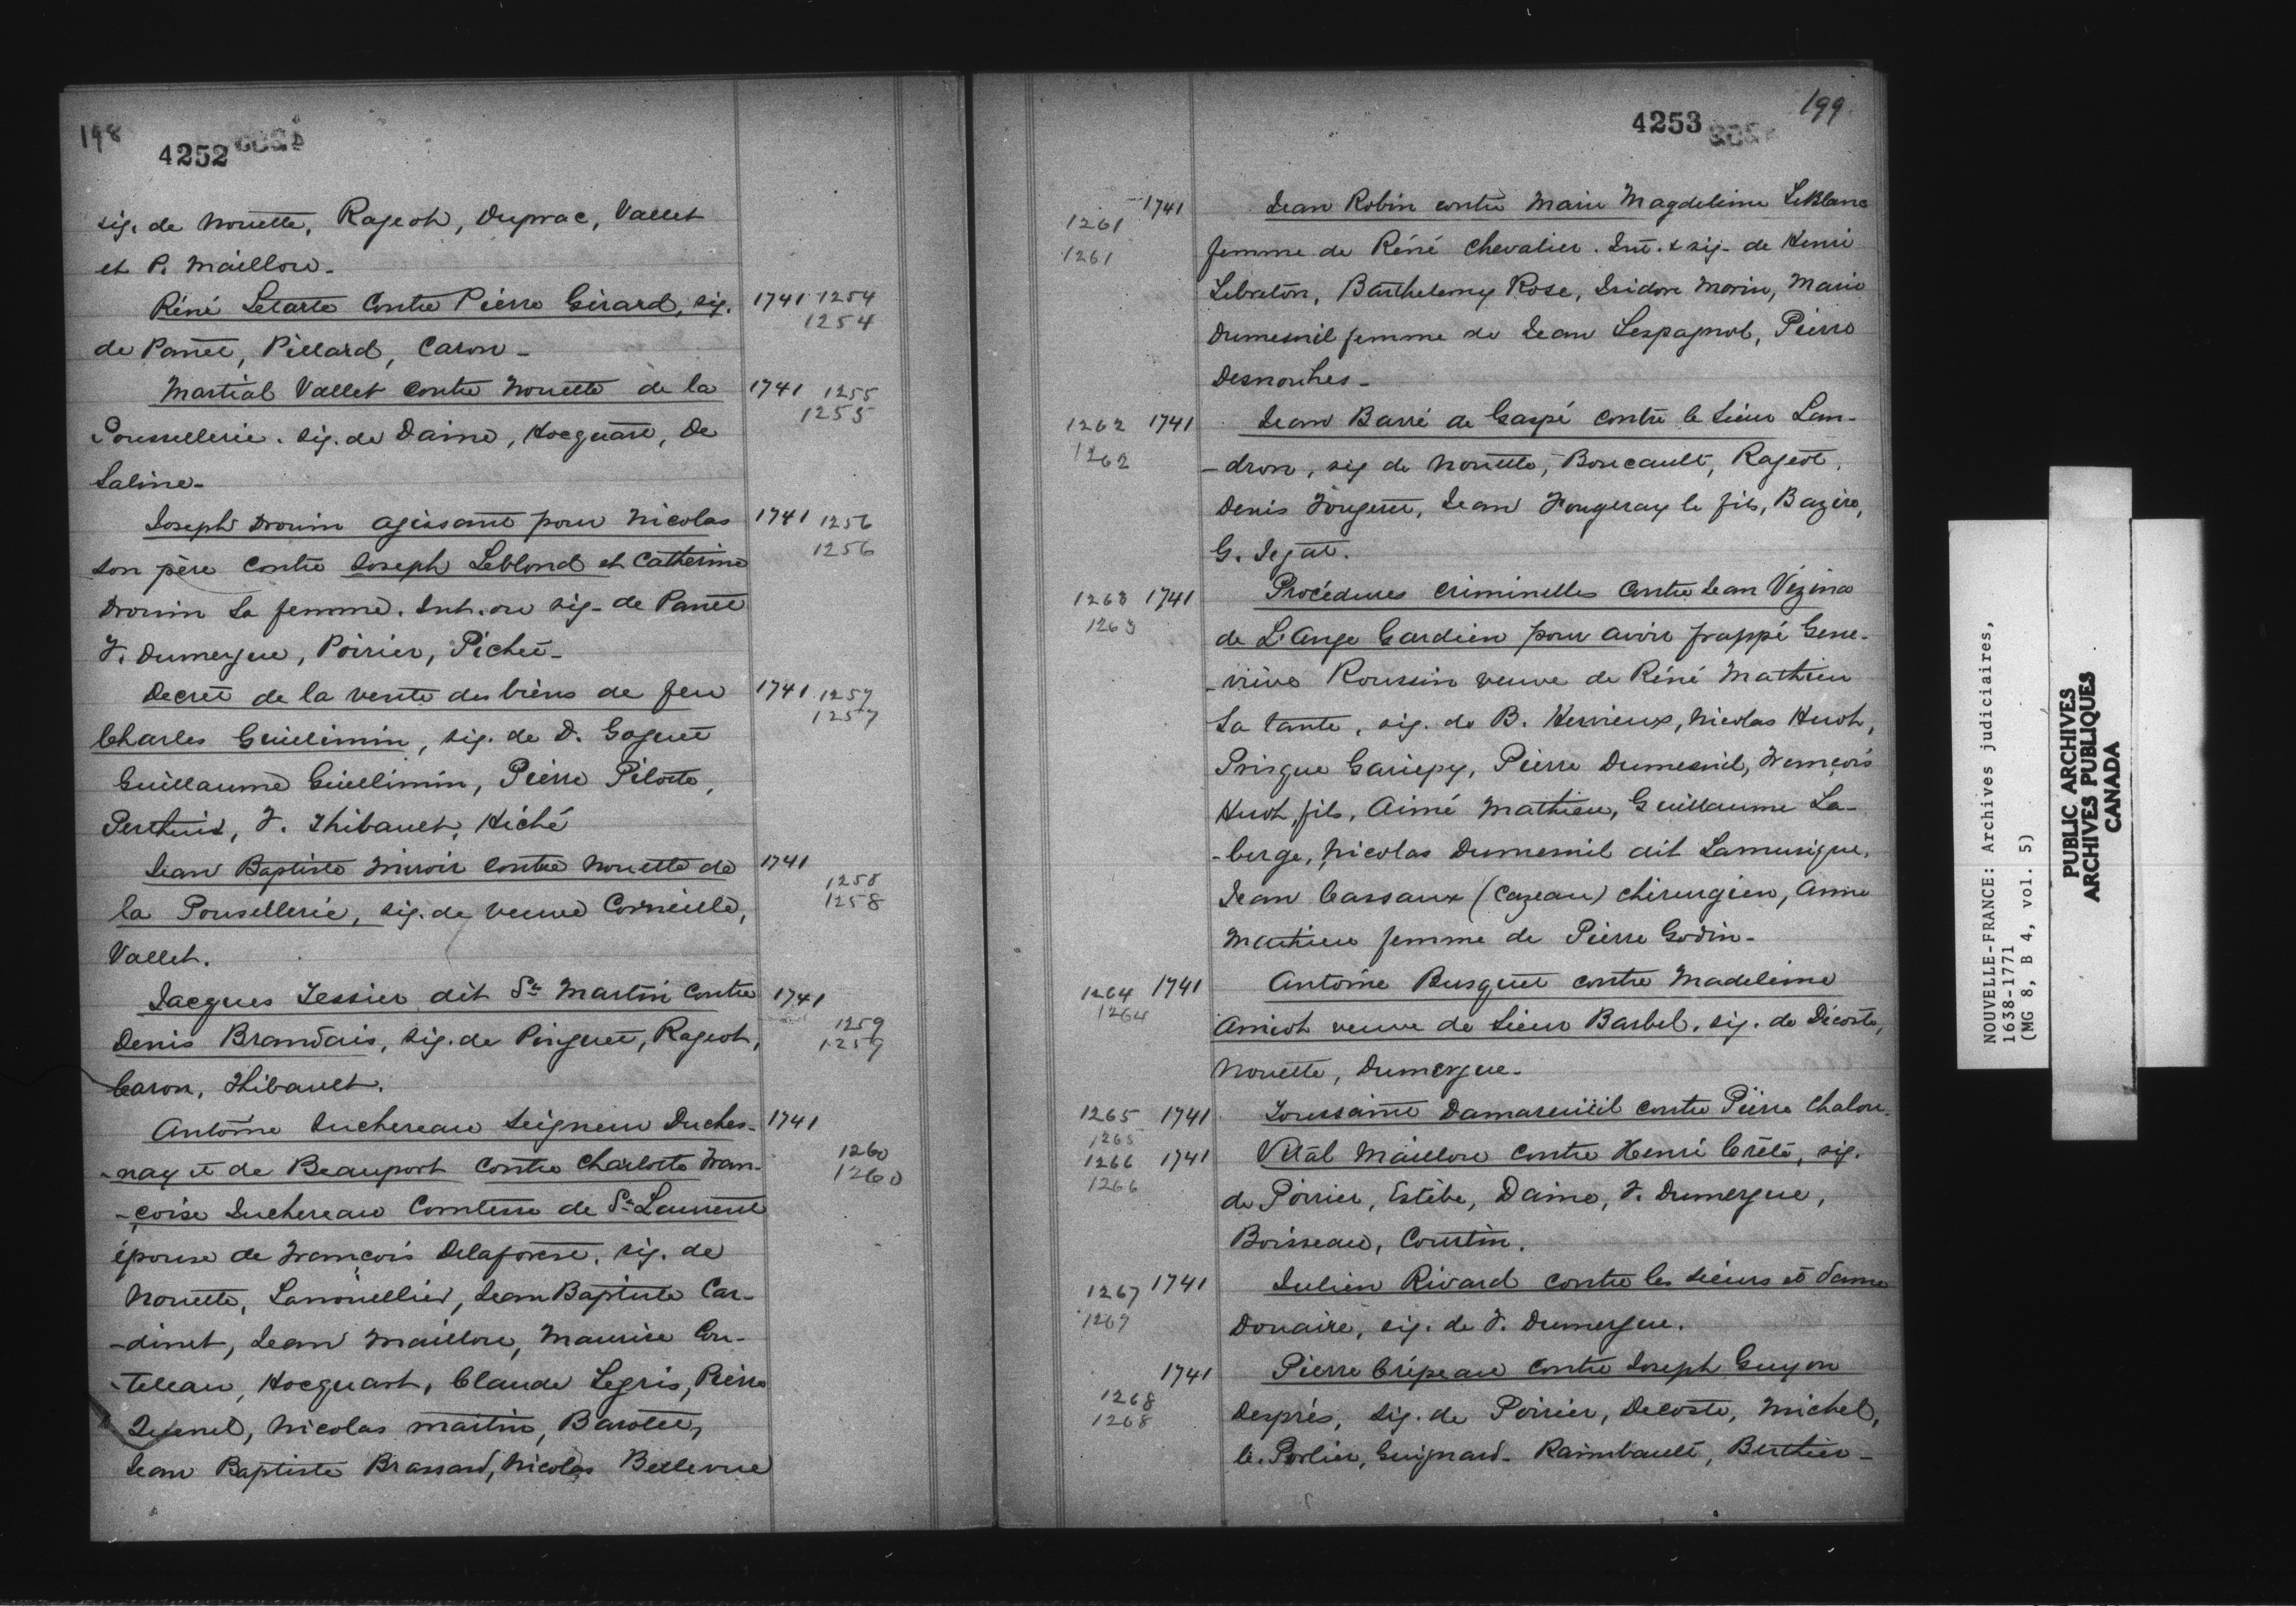 198
4252
sig. de Nouette, Rageot, Duprac, Vallet
et P. Maillou.
Réné Letarte contre Pierre Girard, sig. 1741 1254
1254
de Panet, Pillard, Caron.
Martial Vallet contre Nouette de la 1741 1255
1255
Poussellerie. sig. de Daine, Hocquart, De
Saline.
Joseph Drouin agissant pour Nicolas 1741 1256
son père contre Joseph Leblond et Catherine 1256
Drouin sa femme. Int. ou sig. de Panet
F. Dumergue, Poirier, Pichet.
Decret de la vente des biens de feu 1741 1257
1257
Charles Guillimin, sig. de D. Goguet
Guillaume Guillimin, Pierre Pilotte,
Perthuis, F. Thibault, Hiché
Jean Baptiste Miroir contre Nouette de 1741
1258
la Pousellerie, sig. de veuve Corneille, 1258
Vallet.
Jacques Tessier dit St Martin contre 1741
1259
Denis Brandais, sig. de Pinguet, Rageot, 1259
Caron, Thibault.
Antoine Juchereau Seigneur Duches- 1741
1260
-nay et de Beauport contre Charlotte Fran- 1260
-çoise Juchereau Comtesse de St Laurent
épouse de François Delaforest. sig. de
Nouette, Lanouellier, Jean Baptiste Car-
-dinet, Jean Maillou, Maurice Cou-
-telleau, Hocquart, Claude Legris, Pierre
Nicolas Martin, Barolet,
Jean Baptiste Brassard, Nicolas Bellevue
199
4253
1261 1741 Jean Robin contre Marie Magdeleine LeBlanc
1261 femme de Réné Chevalier. Int. & sig. de Henri
Lebreton, Barthelemy Rose, Isidore Morin, Marie
Dumesnil femme de Jean Lespagnol, Pierre
Desroches.
1262 1741 Jean Barré de Gaspé contre le Sieur Lan-
1262 -dron, sig de Nouette, Boucault, Rageot,
Denis Fougeret, Jean Fougeray le fils, Bazire,
G. Jegat.
1263 1741 Procédures criminelles contre Jean Vézina
1263 de L'Ange Gardien pour avoir frappé Gene-
-viève Roussin veuve de Réné Mathieu
sa tante, sig. de B. Hervieux, Nicolas Huot,
Prisque Gariepy, Pierre Dumesnil, François
Huot, fils, Aimé Mathieu, Guillaume La-
-berge, Nicolas Dumesnil dit Lamusique,
Jean Cassaux (Cazeau) chirurgien, Anne
Mathieu femme de Pierre Godin.
1264 1741 Antoine Busquet contre Madeleine
1264 Amiot veuve de Sieur Barbel. sig. de Décoste,
Nouette, Dumergue.
1265 1741 Toussaint Damareuil contre Pierre Chalou.
1265
1266 1741 Vital Maillou contre Henri Crêté, sig.
1266 de Poirier, Estèbe, Daine, F. Dumergue,
Boisseau, Courtin.
1267 1741 Julien Rivard contre les sieurs et dame
1267 Douaire, sig. de F. Dumergue.
1741 Pierre Crépeau contre Joseph Guyon
1268
1268 Després, sig. de Poirier, Decoste, Michel,
le. Porlier, Guignard. Raimbault, Berthier.
NOUVELLE-FRANCE: Archives judiciaires,
1638-1771
(MG 8, B 4, vol. 5)
PUBLIC ARCHIVES
ARCHIVES PUBLIQUES
CANADA